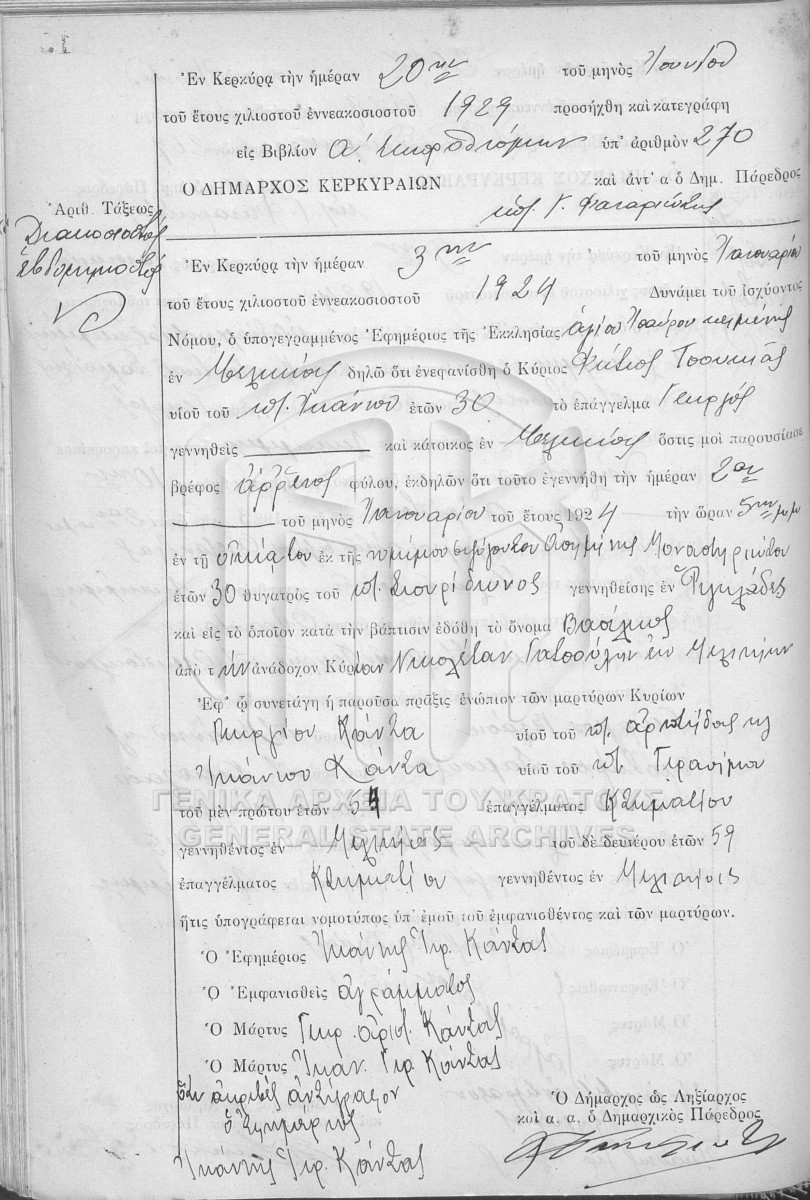 Ἐν Κερκύρᾳ τὴν ἡμέραν 20ην τοῦ μηνὸς Ἰουνίου
τοῦ ἔτους χιλιοστοῦ ἐννεακοσιοστοῦ 1929 προσήχθη καὶ κατεγράφη
εἰς Βιβλίον Α' ὑπ' ἀριθμὸν 270
Ο ΔΗΜΑΡΧΟΣ ΚΕΡΚΥΡΑΙΩΝ καὶ ἀντ' α ὁ Δημ. Πάρεδρος
Ἀριθ. Τάξεως
Διακοσιοστὸς
Ἑβδομηκοστὸς
Ἐν Κερκύρᾳ τὴν ἡμέραν 3ην τοῦ μηνὸς Ἰανουαρίου
τοῦ ἔτους χιλιοστοῦ ἐννεακοσιοστοῦ 1924 Δυνάμει τοῦ ἰσχύοντος
Νόμου, ὁ ὑπογεγραμμένος Ἐφημέριος τῆς Ἐκκλησίας ἁγίου κειμένης
ἐν δηλῶ ὅτι ἐνεφανίσθη ὁ Κύριος Φώτιος
υἱοῦ τοῦ ἐτῶν 30 τὸ ἐπάγγελμα Γεωργός
γεννηθεὶς καὶ κάτοικος ἐν ὅστις μοὶ παρουσίασε
βρέφος ἄρρενος φύλου, ἐκδηλῶν ὅτι τοῦτο ἐγεννήθη τὴν ἡμέραν 2αν
τοῦ μηνὸς Ἰανουαρίου τοῦ ἔτους 1924 τὴν ὥραν 5ην μ μ
ἐν τῇ οἰκίᾳ του ἐκ τῆς νομίμου συζύγου του
ἐτῶν 30 θυγατρὸς τοῦ ποτ. Σπυρίδωνος γεννηθείσης ἐν
καὶ εἰς τὸ ὁποῖον κατὰ τὴν βάπτισιν ἐδόθη τὸ ὄνομα Βασίλειος
ἀπὸ τ ὴν ἀνάδοχον Κυρίαν Νικολέταν
Ἐφ' ᾧ συνετάγη ἡ παροῦσα πρᾶξις ἐνώπιον τῶν μαρτύρων Κυρίων
Γεωργίου Κάντα υἱοῦ τοῦ ποτ.
Ἰωάννου Κάντα υἱοῦ τοῦ ποτ. Γερασίμου
τοῦ μὲν πρώτου ἐτῶν ἐπαγγέλματος Κτηματίου
γεννηθέντος ἐν τοῦ δὲ δευτέρου ἐτῶν 59
ἐπαγγέλματος Κτηματίου γεννηθέντος ἐν
ἥτις ὑπογράφεται νομοτύπως ὑπ' ἐμοῦ τοῦ ἐμφανισθέντος καὶ τῶν μαρτύρων.
Ὁ Ἐφημέριος Ἰωάννης Γερ. Κάντας
Ὁ Ἐμφανισθεὶς ἀγράμματος
Ὁ Μάρτυς Γεωρ. Ἀριστ. Κάντας
Ὁ Μάρτυς Ἰωάν. Γερ. Κάντας
ὅτι ἀκριβὲς ἀντίγραφον
ὁ Ἐφημέριος
Ἰωάννης Γερ. Κάντας
Ὁ Δήμαρχος ὡς Ληξίαρχος
καὶ α. α. ὁ Δημαρχικὸς Πάρεδρος
ΓΕΝΙΚΑ ΑΡΧΕΙΑ ΤΟΥ ΚΡΑΤΟΥΣ
GENERAL STATE ARCHIVES